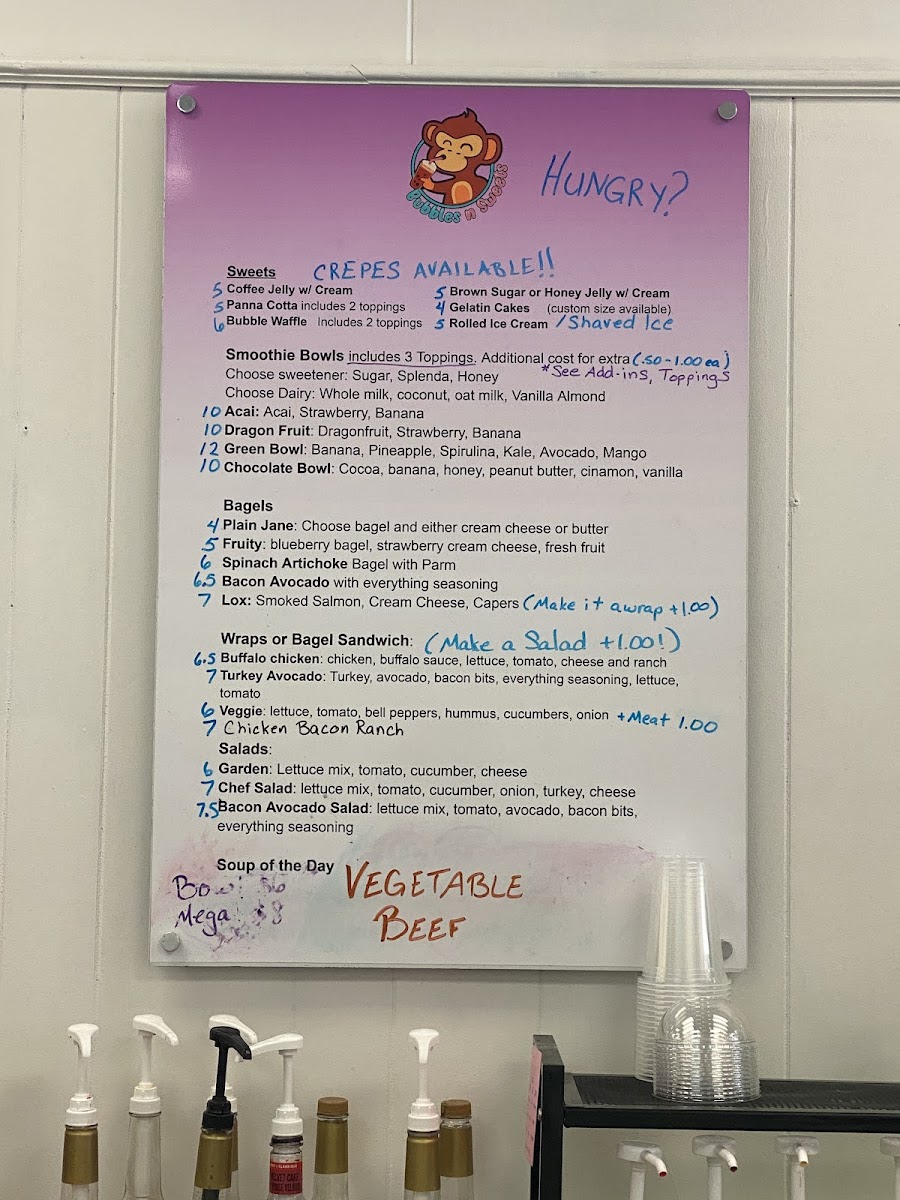 HUNGRY?
Bubbles n Sweets
Sweets CREPES AVAILABLE!!
5 Coffee Jelly w/ Cream 5 Brown Sugar or Honey Jelly w/ Cream
5 Panna Cotta includes 2 toppings 4 Gelatin Cakes (custom size available)
6 Bubble Waffle Includes 2 toppings 5 Rolled Ice Cream /Shaved Ice
Smoothie Bowls includes 3 Toppings. Additional cost for extra (.50-1.00 ea)
Choose sweetener: Sugar, Splenda, Honey *See Add-ins, Toppings
Choose Dairy: Whole milk, coconut, oat milk, Vanilla Almond
10 Acai: Acai, Strawberry, Banana
10 Dragon Fruit: Dragonfruit, Strawberry, Banana
12 Green Bowl: Banana, Pineapple, Spirulina, Kale, Avocado, Mango
10 Chocolate Bowl: Cocoa, banana, honey, peanut butter, cinamon, vanilla
Bagels
4 Plain Jane: Choose bagel and either cream cheese or butter
5 Fruity: blueberry bagel, strawberry cream cheese, fresh fruit
6 Spinach Artichoke Bagel with Parm
6.5 Bacon Avocado with everything seasoning
7 Lox: Smoked Salmon, Cream Cheese, Capers (Make it a wrap +1.00)
Wraps or Bagel Sandwich: (Make a Salad +1.00!)
6.5 Buffalo chicken: chicken, buffalo sauce, lettuce, tomato, cheese and ranch
7 Turkey Avocado: Turkey, avocado, bacon bits, everything seasoning, lettuce,
tomato
6 Veggie: lettuce, tomato, bell peppers, hummus, cucumbers, onion +Meat 1.00
7 Chicken Bacon Ranch
Salads:
6 Garden: Lettuce mix, tomato, cucumber, cheese
7 Chef Salad: lettuce mix, tomato, cucumber, onion, turkey, cheese
7.5 Bacon Avocado Salad: lettuce mix, tomato, avocado, bacon bits,
everything seasoning
Soup of the Day VEGETABLE
Bowl $6
BEEF
Mega $8